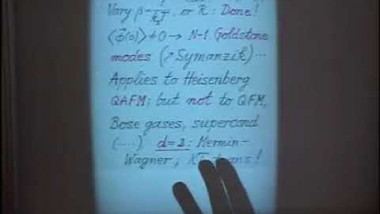 Vary β = 1/kT, or R: Done!
⟨Φ(0)⟩ ≠ 0 → N-1 Goldstone
modes (↗ Symanzik)...
Applies to Heisenberg
QAFM; but not to QFM,
Bose gases, supercond
(....) d=2: Mermin-
Wagner, KT trans!